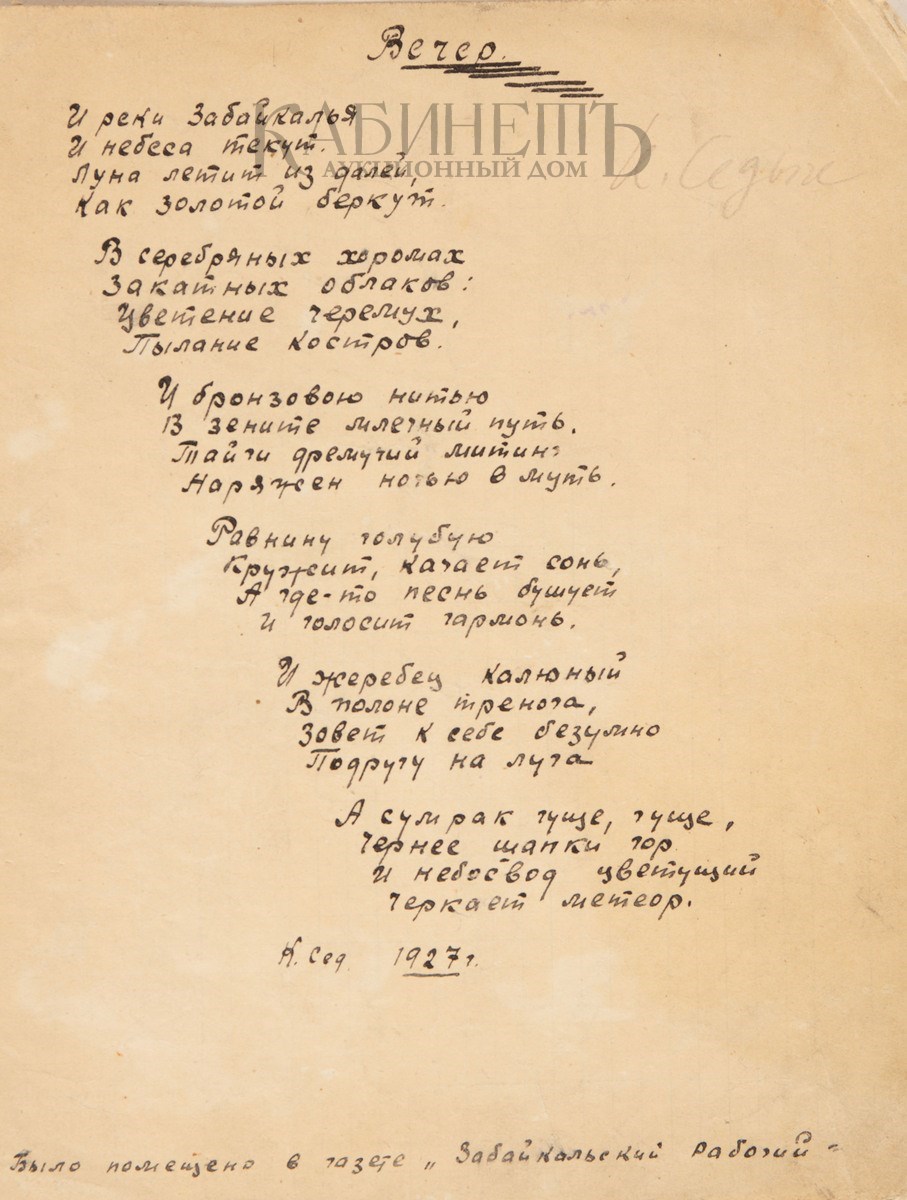 Вечер.
КАБИНЕТЪ
АУКЦИОННЫЙ ДОМ
И реки Забайкалья
И небеса текут.
Луна летит из далей,
Как золотой беркут.
К. Седых
В серебряных хоромах
Закатных облаков:
Цветение черемух,
Пылание костров.
И бронзовою нитью
В зените млечный путь.
Тайги дремучий митинг
Наряжен ночью в муть.
Равнину голубую
Кружит, качает сонь,
А где-то песнь бушует
И голосит гармонь.
И жеребец калюный
В полоне тренога,
Зовет к себе безумно
Подругу на луга
А сумрак гуще, гуще,
Чернее шапки гор
И небосвод цветущий
Черкает метеор.
К. Сед 1927 г.
Было помещено в газете „Забайкальский Рабочий"